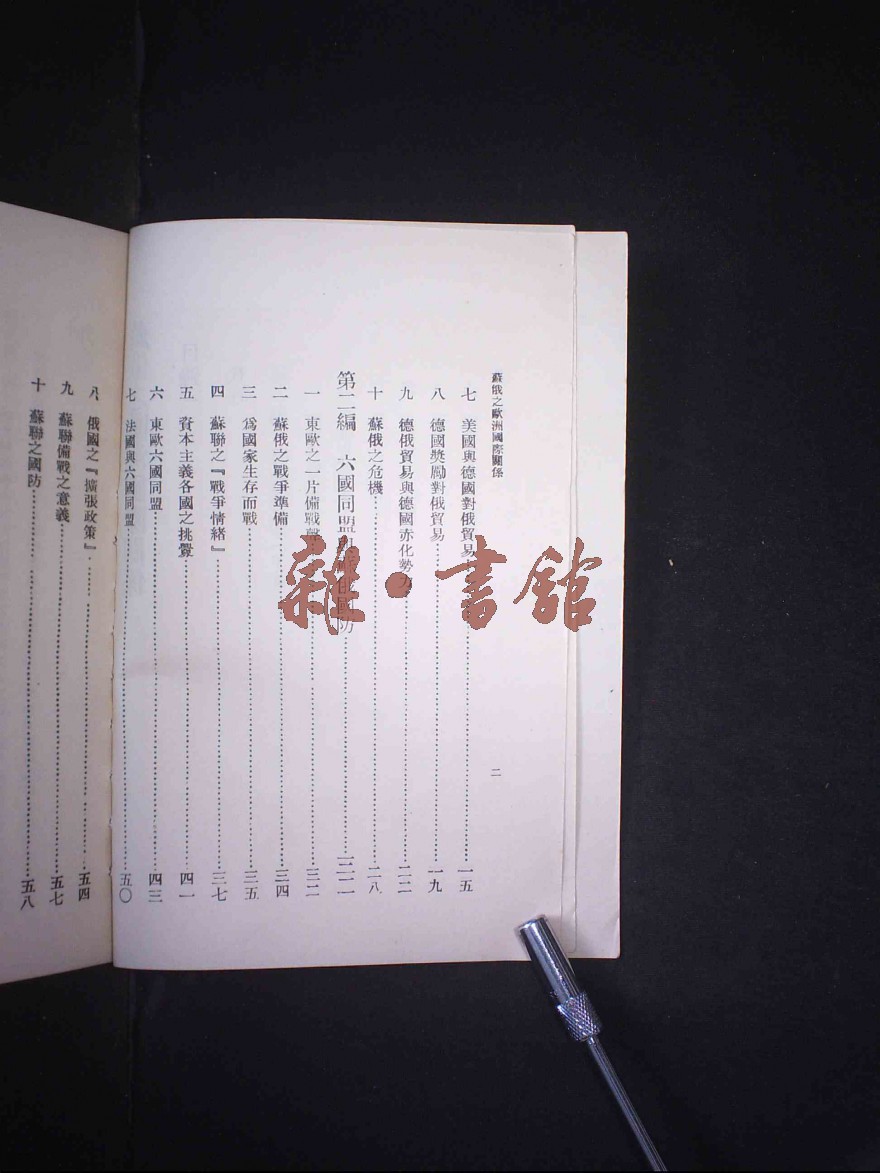 蘇俄之歐洲國際關係
二
七 美國與德國對俄貿易 一五
八 德國獎勵對俄貿易 一九
九 德俄貿易與德國赤化勢力 二二
十 蘇俄之危機 二八
第二編 六國同盟與蘇俄國防 三二
一 東歐之一片備戰聲 三二
二 蘇俄之戰爭準備 三四
三 爲國家生存而戰 三五
四 蘇聯之『戰爭情緒』 三七
五 資本主義各國之挑釁 四一
六 東歐六國同盟 四三
七 法國與六國同盟 五〇
八 俄國之『擴張政策』 五四
九 蘇聯備戰之意義 五七
十 蘇聯之國防 五八
雜·書館